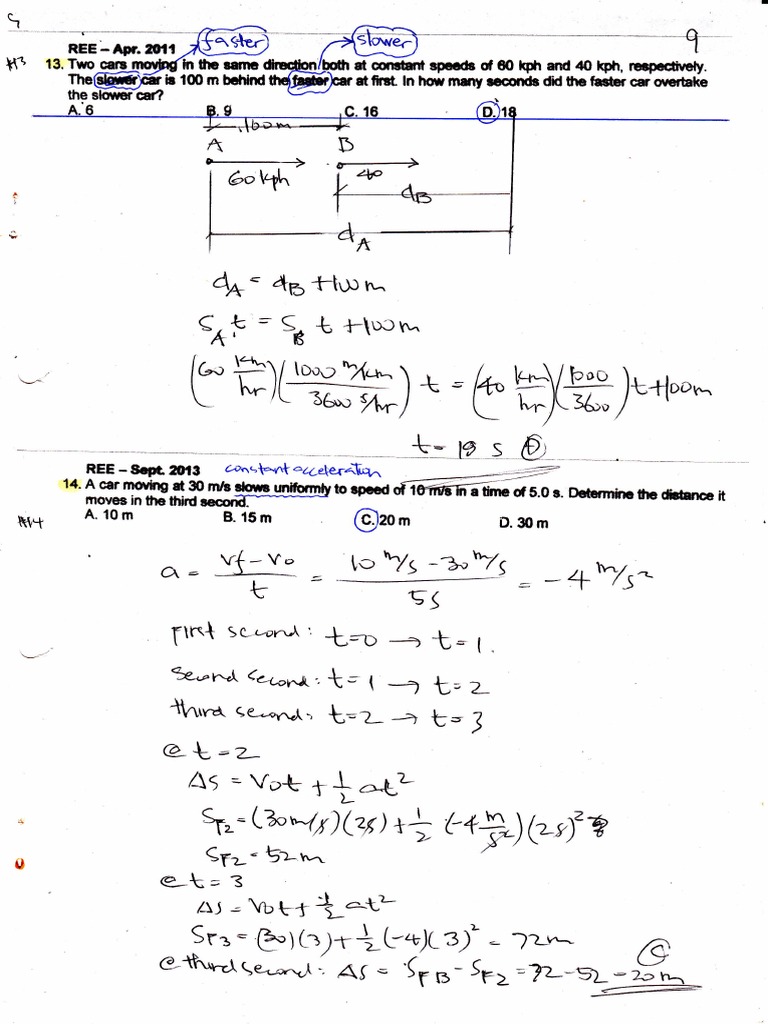 9
REE – Apr. 2011 faster slower
#13 13. Two cars moving in the same direction both at constant speeds of 60 kph and 40 kph, respectively.
The slower car is 100 m behind the faster car at first. In how many seconds did the faster car overtake
the slower car?
A. 6 B. 9 C. 16 D. 18
100m
A B
60 kph 40
dB
dA
dA = dB + 100m
SA t = SB t + 100m
(60 km/hr)(1000 m/km / 3600 s/hr) t = (40 km/hr)(1000/3600) t + 100m
t = 18 s D
REE – Sept. 2013 constant acceleration
14. A car moving at 30 m/s slows uniformly to speed of 10 m/s in a time of 5.0 s. Determine the distance it
moves in the third second.
#14 A. 10 m B. 15 m C. 20 m D. 30 m
a = Vf - Vo / t = 10 m/s - 30 m/s / 5s = -4 m/s²
First second: t=0 → t=1.
Second second: t=1 → t=2
third second: t=2 → t=3
@ t=2
ΔS = Vot + 1/2 at²
SF2 = (30m/s)(2s) + 1/2 (-4 m/s²)(2s)²
SF2 = 52m
@ t=3
ΔS = Vot + 1/2 at²
SF3 = (30)(3) + 1/2 (-4)(3)² = 72m
C
@ third second: ΔS = SF3 - SF2 = 72 - 52 = 20m